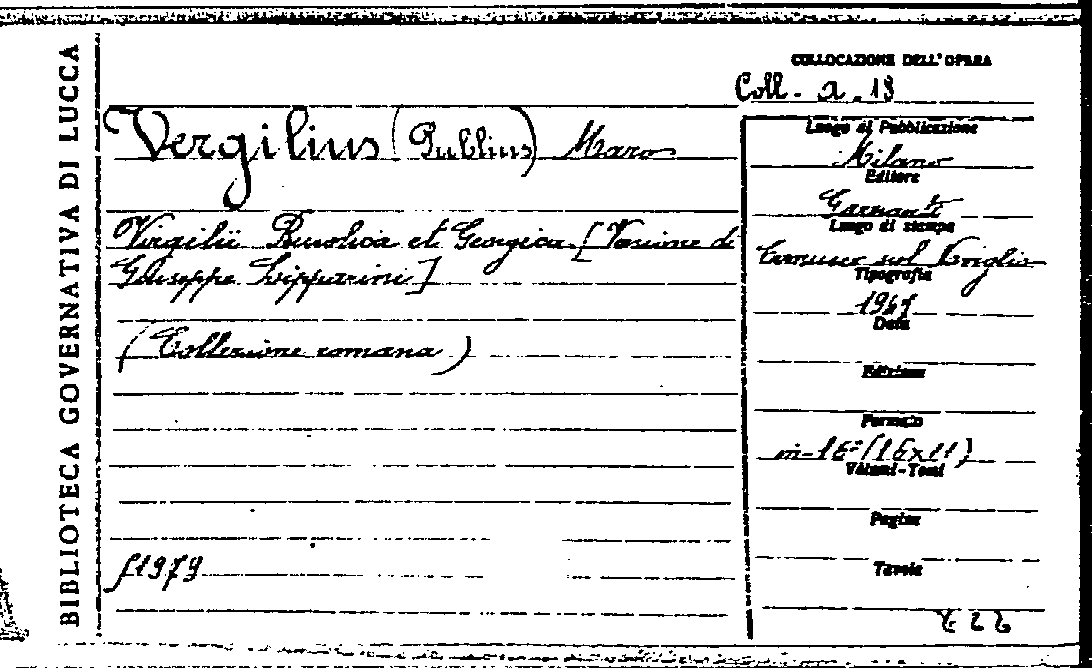 BIBLIOTECA GOVERNATIVA DI LUCCA
COLLOCAZIONE DELL'OPERA
Coll. a. 13
Vergilius (Publius) Maro
Virgilii Bucolica et Georgica. [Versione di
Giuseppe Lipparini]
(Collezione romana)
f1979
Luogo di Pubblicazione
Milano
Editore
Garzanti
Luogo di stampa
Cernusco sul Naviglio
Tipografia
Data
Edizione
Formato
in-16° (16x11)
Volumi-Tomi
Pagine
Tavole